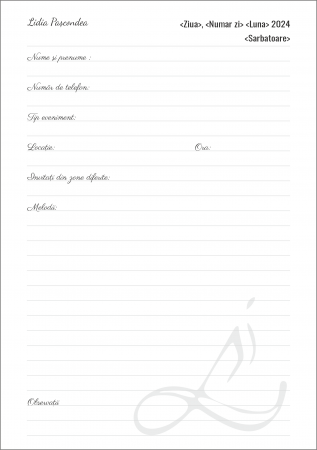 Lidia Pascondea
<Ziua>, <Numar zi> <Luna> 2024
<Sarbatoare>
Nume și prenume :
Număr de telefon:
Tip eveniment:
Locatie: Ora:
Invitati din zone diferite:
Melodii:
Observatii